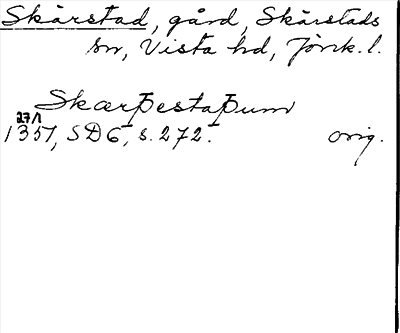 Skärstad, gård, Skärstads
sn, Vista hd, Jönk. l.
Skærþestaþum
27/1
1357, SD6, s. 272. orig.